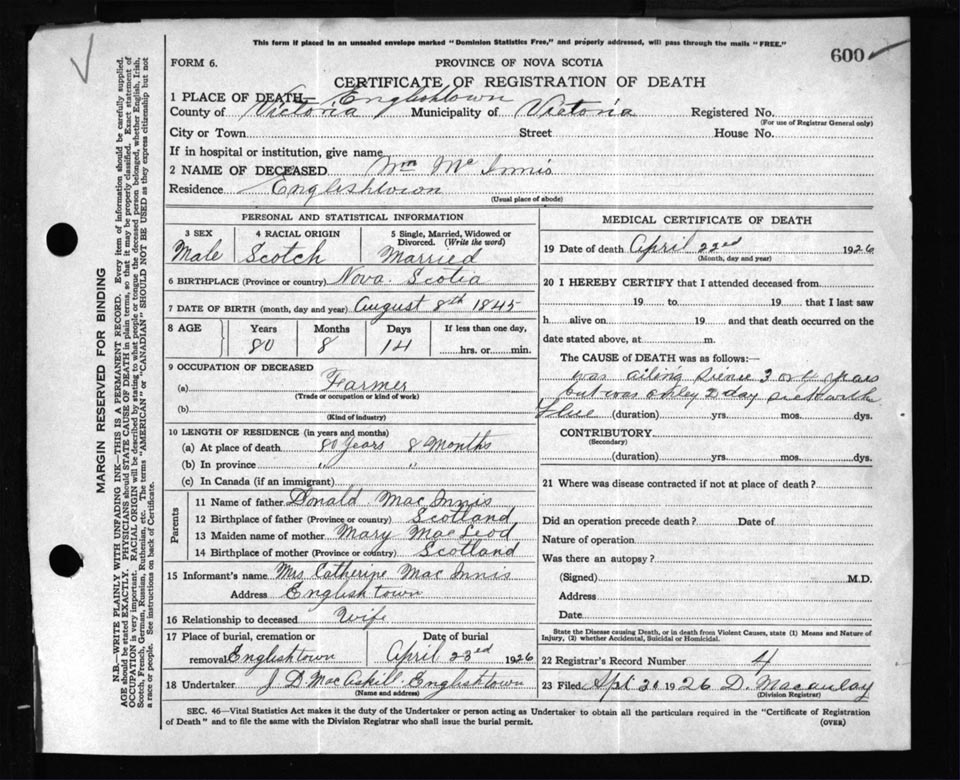 This form if placed in an unsealed envelope marked "Dominion Statistics Free," and properly addressed, will pass through the mails "FREE."
600
FORM 6.
PROVINCE OF NOVA SCOTIA
CERTIFICATE OF REGISTRATION OF DEATH
1 PLACE OF DEATH— Englishtown
County of Victoria Municipality of Victoria Registered No.
(For use of Registrar General only)
City or Town Street House No.
If in hospital or institution, give name
2 NAME OF DECEASED Wm Mc Innis
Residence Englishtown
(Usual place of abode)
PERSONAL AND STATISTICAL INFORMATION
3 SEX 4 RACIAL ORIGIN 5 Single, Married, Widowed or Divorced. (Write the word)
Male Scotch Married
6 BIRTHPLACE (Province or country) Nova Scotia
7 DATE OF BIRTH (month, day and year) August 8th 1845
8 AGE Years Months Days If less than one day,
80 8 14 hrs. or min.
9 OCCUPATION OF DECEASED
(a) Farmer
(Trade or occupation or kind of work)
(b)
(Kind of industry)
10 LENGTH OF RESIDENCE (in years and months)
(a) At place of death 80 Years 8 Months
(b) In province " "
(c) In Canada (if an immigrant)
Parents
11 Name of father Donald Mac Innis
12 Birthplace of father (Province or country) Scotland
13 Maiden name of mother Mary MacLeod
14 Birthplace of mother (Province or country) Scotland
15 Informant's name Mrs Catherine Mac Innis
Address Englishtown
16 Relationship to deceased Wife
17 Place of burial, cremation or Date of burial
removal Englishtown April 23rd 1926
18 Undertaker J. D. MacAskill Englishtown
(Name and address)
MEDICAL CERTIFICATE OF DEATH
19 Date of death April 22ed 1926
(Month, day and year)
20 I HEREBY CERTIFY that I attended deceased from
19 to 19 that I last saw
h alive on 19 and that death occurred on the
date stated above, at m.
The CAUSE of DEATH was as follows:—
was ailing 3 or 4 years
but was only 2 day sick with
Flue (duration) yrs. mos. dys.
CONTRIBUTORY
(Secondary)
(duration) yrs. mos. dys.
21 Where was disease contracted if not at place of death?
Did an operation precede death? Date of
Nature of operation
Was there an autopsy?
(Signed) M.D.
Address
Date
State the Disease causing Death, or in death from Violent Causes, state (1) Means and Nature of
Injury, (2) whether Accidental, Suicidal or Homicidal.
22 Registrar's Record Number 4
23 Filed 1926 D. Macaulay
(Division Registrar)
SEC. 46—Vital Statistics Act makes it the duty of the Undertaker or person acting as Undertaker to obtain all the particulars required in the "Certificate of Registration
of Death" and to file the same with the Division Registrar who shall issue the burial permit.
(OVER)
MARGIN RESERVED FOR BINDING
N.B.—WRITE PLAINLY WITH UNFADING INK—THIS IS A PERMANENT RECORD. Every item of information should be carefully supplied.
AGE should be stated EXACTLY. PHYSICIANS should STATE CAUSE OF DEATH in plain terms, so that it may be properly classified. Exact statement of
OCCUPATION is very important. RACIAL ORIGIN will be described by stating to what people or tongue the deceased person belonged, whether English, Irish,
Scotch, French, German, Russian, Ruthenian, etc. The terms "AMERICAN" or "CANADIAN" SHOULD NOT BE USED as they express citizenship but not
a race or people. See instructions on back of Certificate.